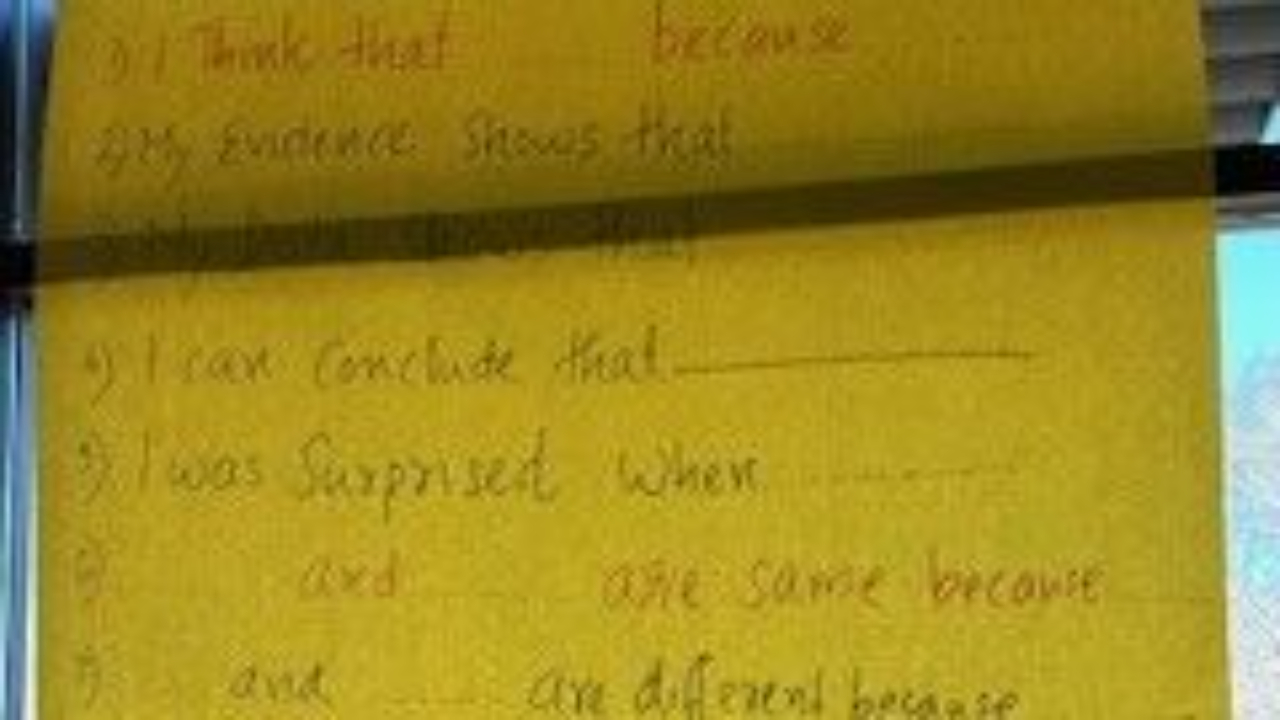 1) I Think that because
2) My Evidence Shows that
that
4) I can Conclude that
5) I was Surprised when
6) and are same because
7) and are different because